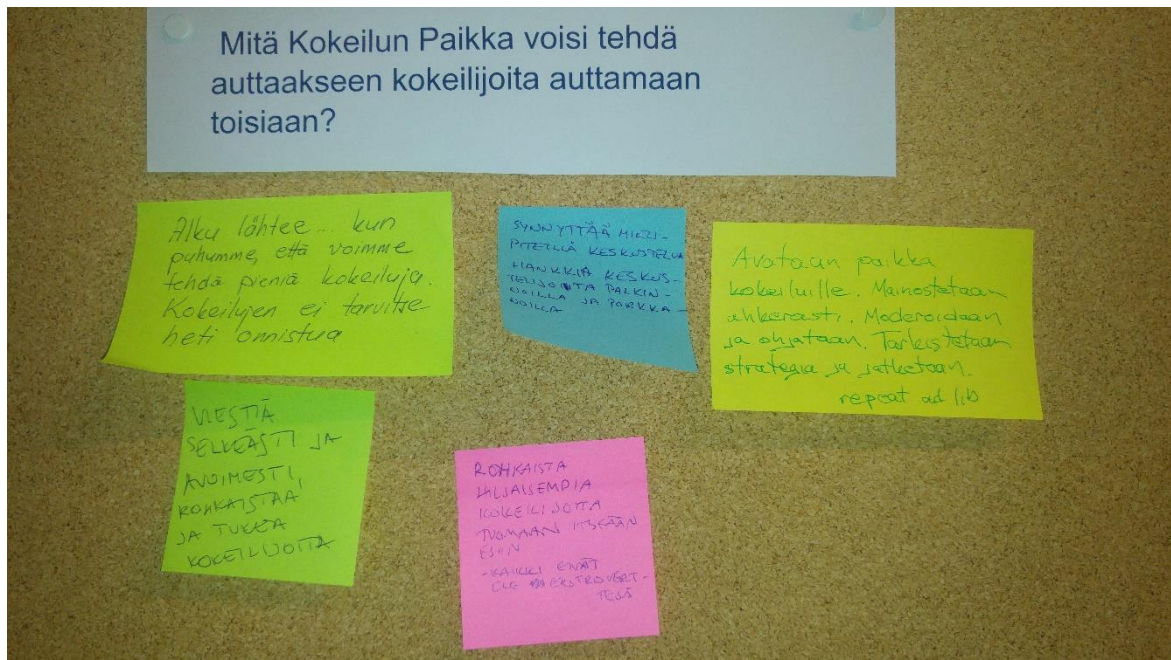 Mitä Kokeilun Paikka voisi tehdä
auttaakseen kokeilijoita auttamaan
toisiaan?
Alku lähtee... kun
puhumme, että voimme
tehdä pieniä kokeiluja.
Kokeilujen ei tarvitse
heti onnistua
SYNNYTTÄÄ MIELI-
PITEILLÄ KESKUSTELUA
HANKKIA KESKUS-
TELIJOITA PALKIN-
NOILLA JA PORKKA-
NOILLA
Avataan paikka
kokeiluille. Mainostetaan
ahkerasti. Moderoidaan
ja ohjataan. Tarkistetaan
strategia ja jatketaan.
repeat ad lib
VIESTIÄ
SELKEÄSTI JA
AVOIMESTI,
ROHKAISTAA
JA TUKEA
KOKEILIJOITA
ROHKAISTA
HILJAISEMPIA
KOKEILIJOITA
TUOMAAN ITSEÄÄN
ESIIN
-KAIKKI EIVÄT
OLE EKSTROVERT-
TEJÄ